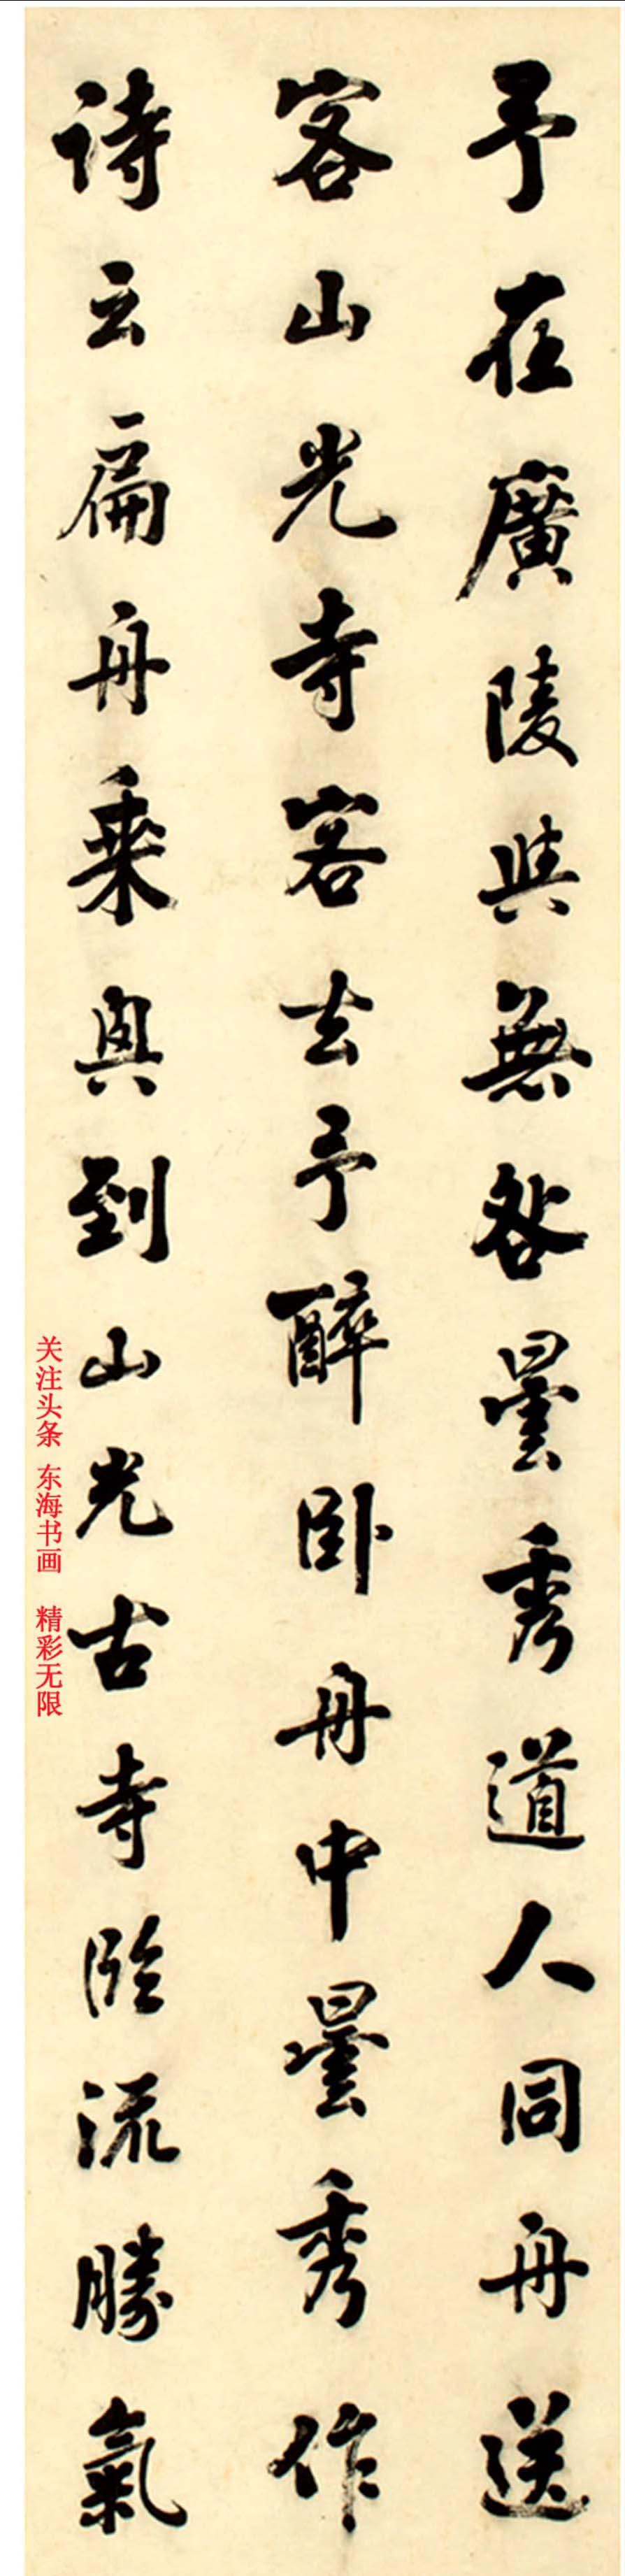 予在廣陵與無咎曇秀道人同舟送
客山光寺客去予醉卧舟中曇秀作
詩云扁舟乘興到山光古寺臨流勝氣
关注头条 东海书画 精彩无限